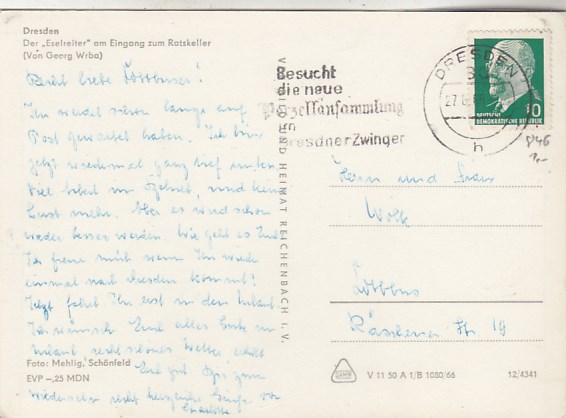 Dresden
Der „Eselreiter" am Eingang zum Ratskeller
(Von Georg Wrba)
Ihr werdet schon lange auf
Post gewartet haben. Ich bin
jetzt wiedermal ganz tief unten.
Viel Arbeit im Geschäft, und kein
Lust mehr. Aber es wird schon
wieder besser werden. Wie geht es Euch
Ich freue mich wenn Ihr wieder
einmal nach Dresden kommt!
Jetzt fahrt Ihr erst in den Urlaub.
Ich wünsche Euch alles Gute im
Urlaub, recht schönes Wetter
Euch gut zum
Wiedersehen recht herzliche Grüße von
Foto: Mehlig, Schönfeld
EVP –,25 MDN
VERLAG BILD UND HEIMAT REICHENBACH I. V.
Besucht
die neue
Porzellansammlung
im
Dresdner Zwinger
DRESDEN
27
h
10
DEUTSCHE
DEMOKRATISCHE REPUBLIK
846
1,-
Herrn und Frau
Cottbus
Str 19
V 11 50 A 1/B 1080/66
12/4341